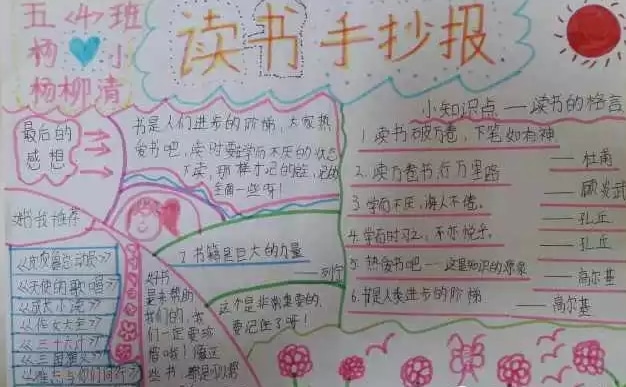 五<4>班
杨 小
杨柳清
读书手抄报
最后的
感想
书是人们进步的阶梯,大家热
爱书吧,读时要学而不厌的状态
下读,那样才记的
全面一些呀!
小知识点——读书的格言
1 读书破万卷,下笔如有神
——杜甫
2.读万卷书行万里路
——顾炎武
3.学而不厌,诲人不倦。
——孔丘
4.学而时习之,不亦悦乎。
——孔丘
5 热爱书吧——这是知识的源泉
——高尔基
6.书是人类进步的阶梯
——高尔基
好书推荐
《天使的歌唱》
《成长小说》
《作文大王》
《三十六计》
《三国演义》
7 书籍是巨大的力量
——列宁
这个是非常重要的,
要记住了呀!
好书
是来帮助
我们的,我
们一定要珍
惜哦!像这
些书 都是